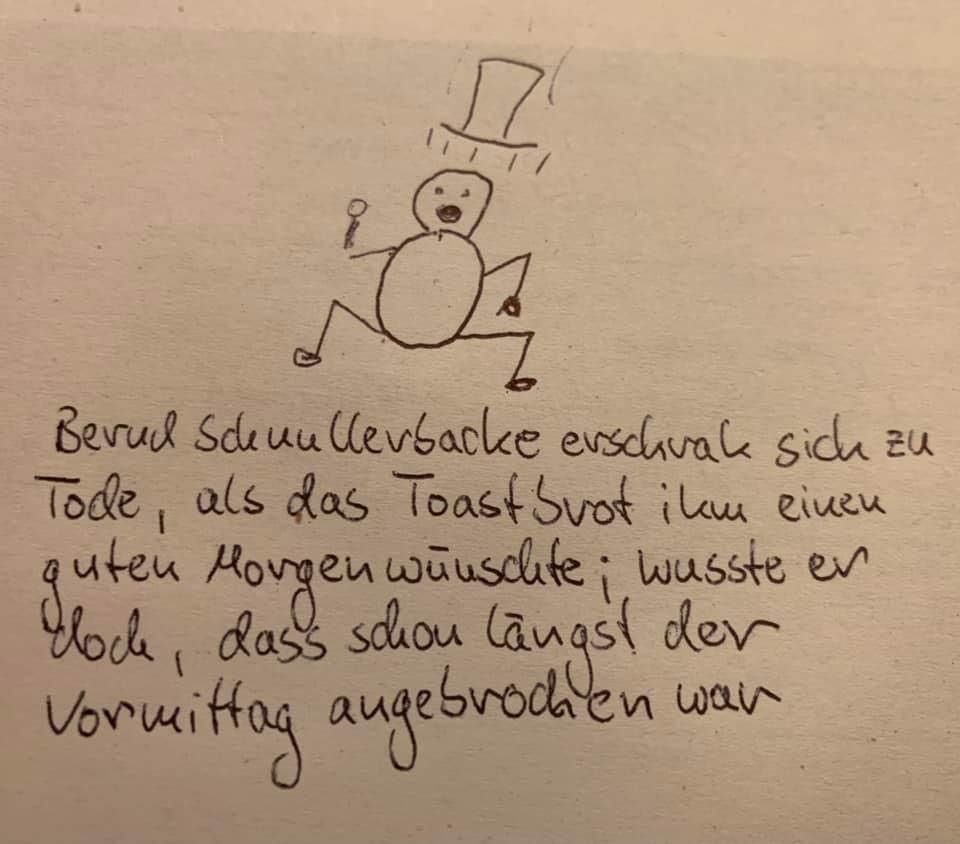 Bernd Schnullerbacke erschrak sich zu
Tode, als das Toastbrot ihm einen
guten Morgen wünschte; wusste er
doch, dass schon längst der
Vormittag angebrochen war